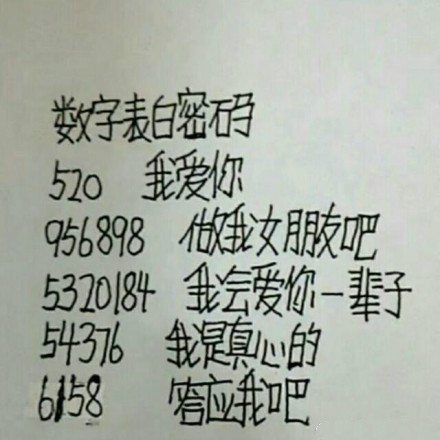 数字表白密码
520 我爱你
956898 做我女朋友吧
5320184 我会爱你一辈子
54376 我是真心的
6158 答应我吧